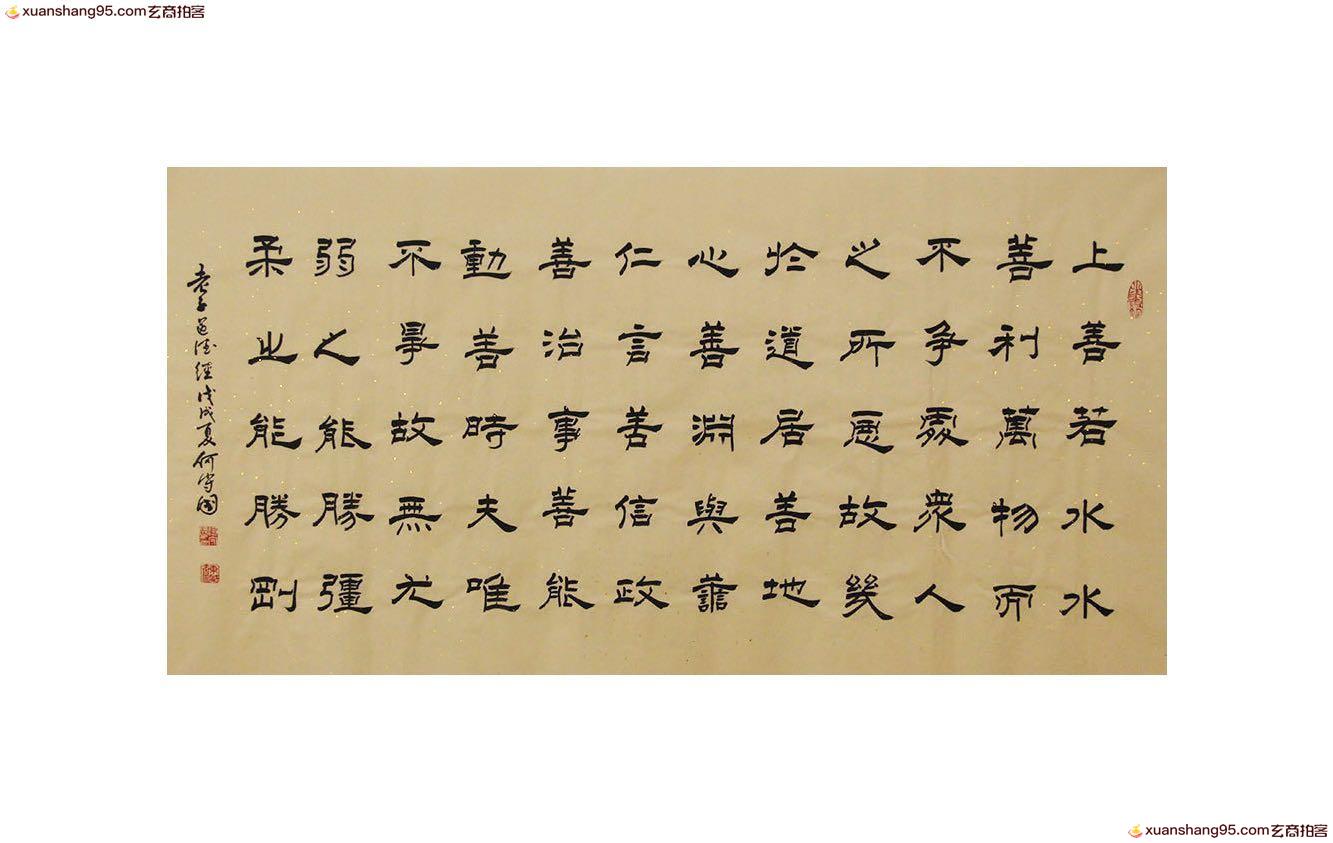 xuanshang95.com玄商拍客
上善若水水
善利萬物而
不争處衆人
之所惡故幾
於道居善地
心善淵與善
仁言善信政
善治事善能
動善時夫唯
不爭故無尤
弱之能勝彊
柔之能勝剛
老子道德經戊戌夏何守國
xuanshang95.com玄商拍客